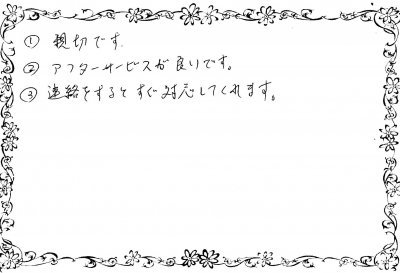 ① 親切です.
② アフターサービスが良いです。
③ 連絡をするとすぐ対応してくれます。